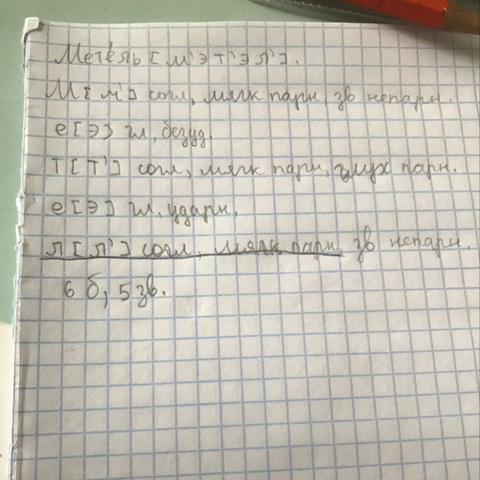 Метель [м'эт'эл'].
М[м'] согл, мягк парн, зв непарн.
е[э] гл, безуд.
т[т'] согл, мягк парн, глух парн.
е[э] гл, ударн,
л[л'] согл, мягк парн зв непарн.
6 б, 5 зв.